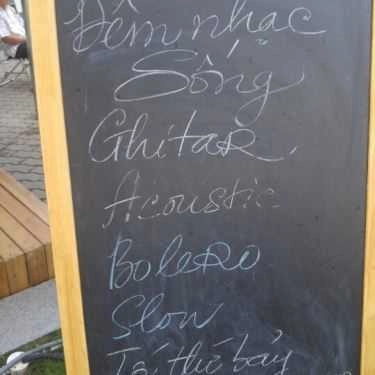 Đêm nhạc
Sống
Ghitar
Acoustic
Bolero
Slow
Tối thứ bảy